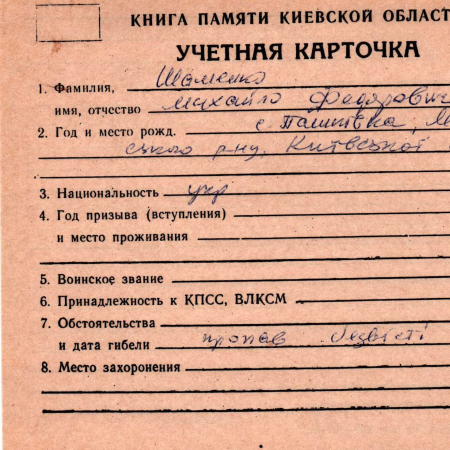 КНИГА ПАМЯТИ КИЕВСКОЙ ОБЛАСТ
УЧЕТНАЯ КАРТОЧКА
1. Фамилия, Шаменко
имя, отчество Михайло Федорович
2. Год и место рожд. с. Пашківка, М
ського р-ну, Київської
3. Национальность укр
4. Год призыва (вступления)
и место проживания
5. Воинское звание
6. Принадлежность к КПСС, ВЛКСМ
7. Обстоятельства
и дата гибели пропав безвісті
8. Место захоронения